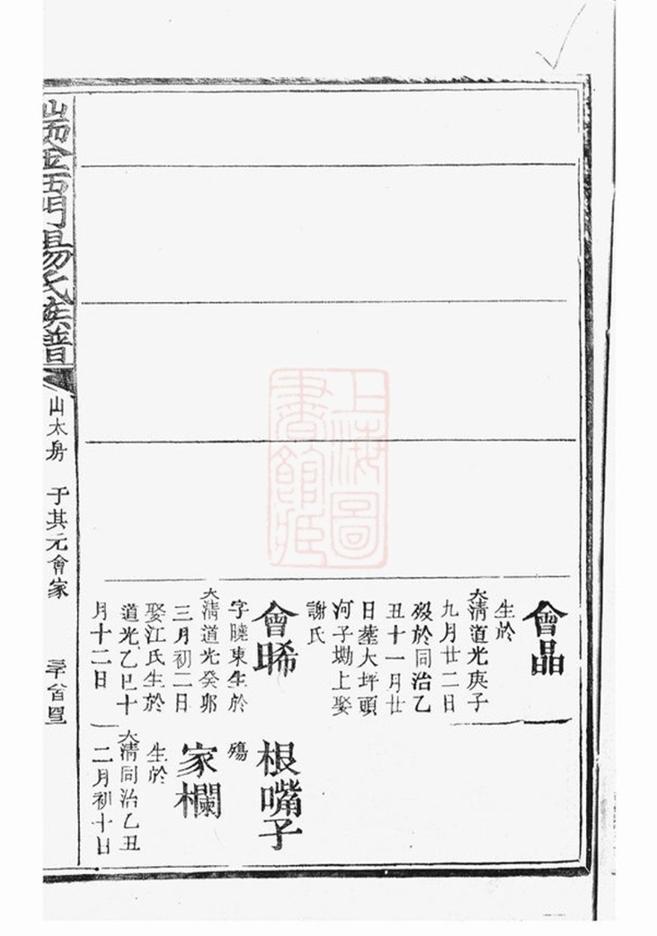 會晶
生於
大清道光庚子
九月廿二日
歿於同治乙
丑十一月廿
日塟大坪頭
河子塘上娶
謝氏
會晞
字曉東生於
大清道光癸卯
三月初二日
娶江氏生於
道光乙巳十
月十二日
根嘴子
殤
家欄
生於
大清同治乙丑
二月初十日
瑞金西門楊氏族譜
山太房 于其元會家
上海圖
書館藏